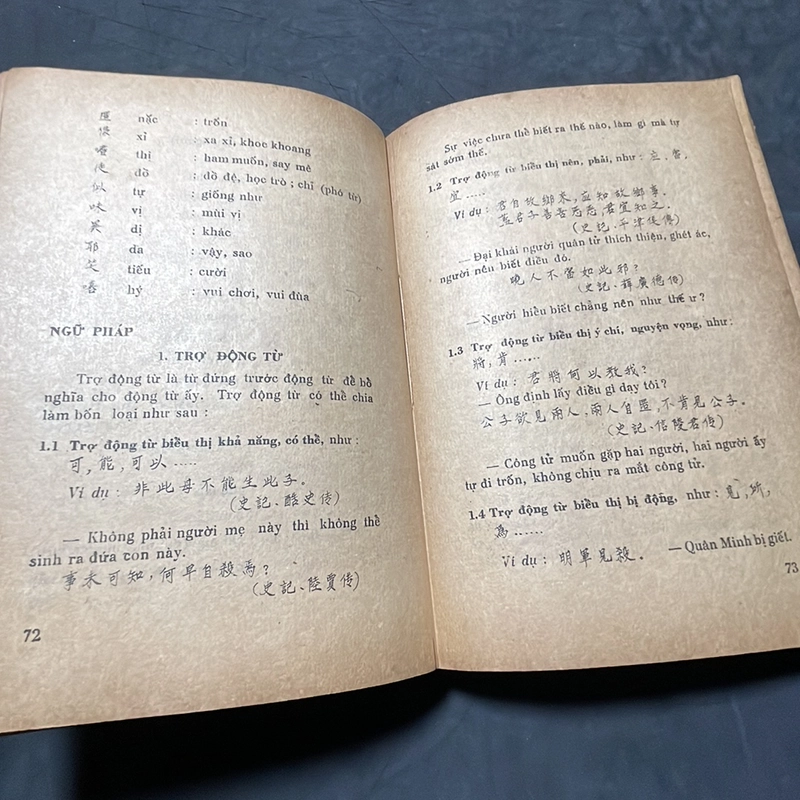 匿 nặc : trốn
侈 xỉ : xa xỉ, khoe khoang
嗜 thị : ham muốn, say mê
徒 đồ : đồ đệ, học trò ; chỉ (phó từ)
似 tự : giống như
味 vị : mùi vị
異 dị : khác
耶 da : vậy, sao
笑 tiếu : cười
hý : vui chơi, vui đùa
NGỮ PHÁP
1. TRỢ ĐỘNG TỪ
Trợ động từ là từ đứng trước động từ để bổ
nghĩa cho động từ ấy. Trợ động từ có thể chia
làm bốn loại như sau :
1.1 Trợ động từ biểu thị khả năng, có thể, như :
可, 能, 可以 .....
Ví dụ : 非此母不能生此子.
(史記、酷史传)
— Không phải người mẹ này thì không thể
sinh ra đứa con này.
事未可知, 何早自殺焉?
(史記、陸賈传)
72
Sự việc chưa thể biết ra thế nào, làm gì mà tự
sát sớm thế.
1.2 Trợ động từ biểu thị nên, phải, như :
宜 .....
Ví dụ : 君自故鄉來, 應知故鄉事.
蓋君子善善惡惡, 君宜知之.
(史記、平津侯傳)
— Đại khái người quân tử thích thiện, ghét ác,
người nên biết điều đó.
曉人不當如此邪?
(史記、薛廣德传)
— Người hiểu biết chẳng nên như thế ư ?
1.3 Trợ động từ biểu thị ý chí, nguyện vọng, như :
將, 肯 .....
Ví dụ : 君將何以教我?
— Ông định lấy điều gì dạy tôi ?
公子欲見兩人, 兩人自匿, 不肯見公子.
(史記、信陵君传)
— Công tử muốn gặp hai người, hai người ấy
tự đi trốn, không chịu ra mắt công tử.
1.4 Trợ động từ biểu thị bị động, như : 見, 所,
爲 .....
Ví dụ : 明軍見殺. — Quân Minh bị giết.
73